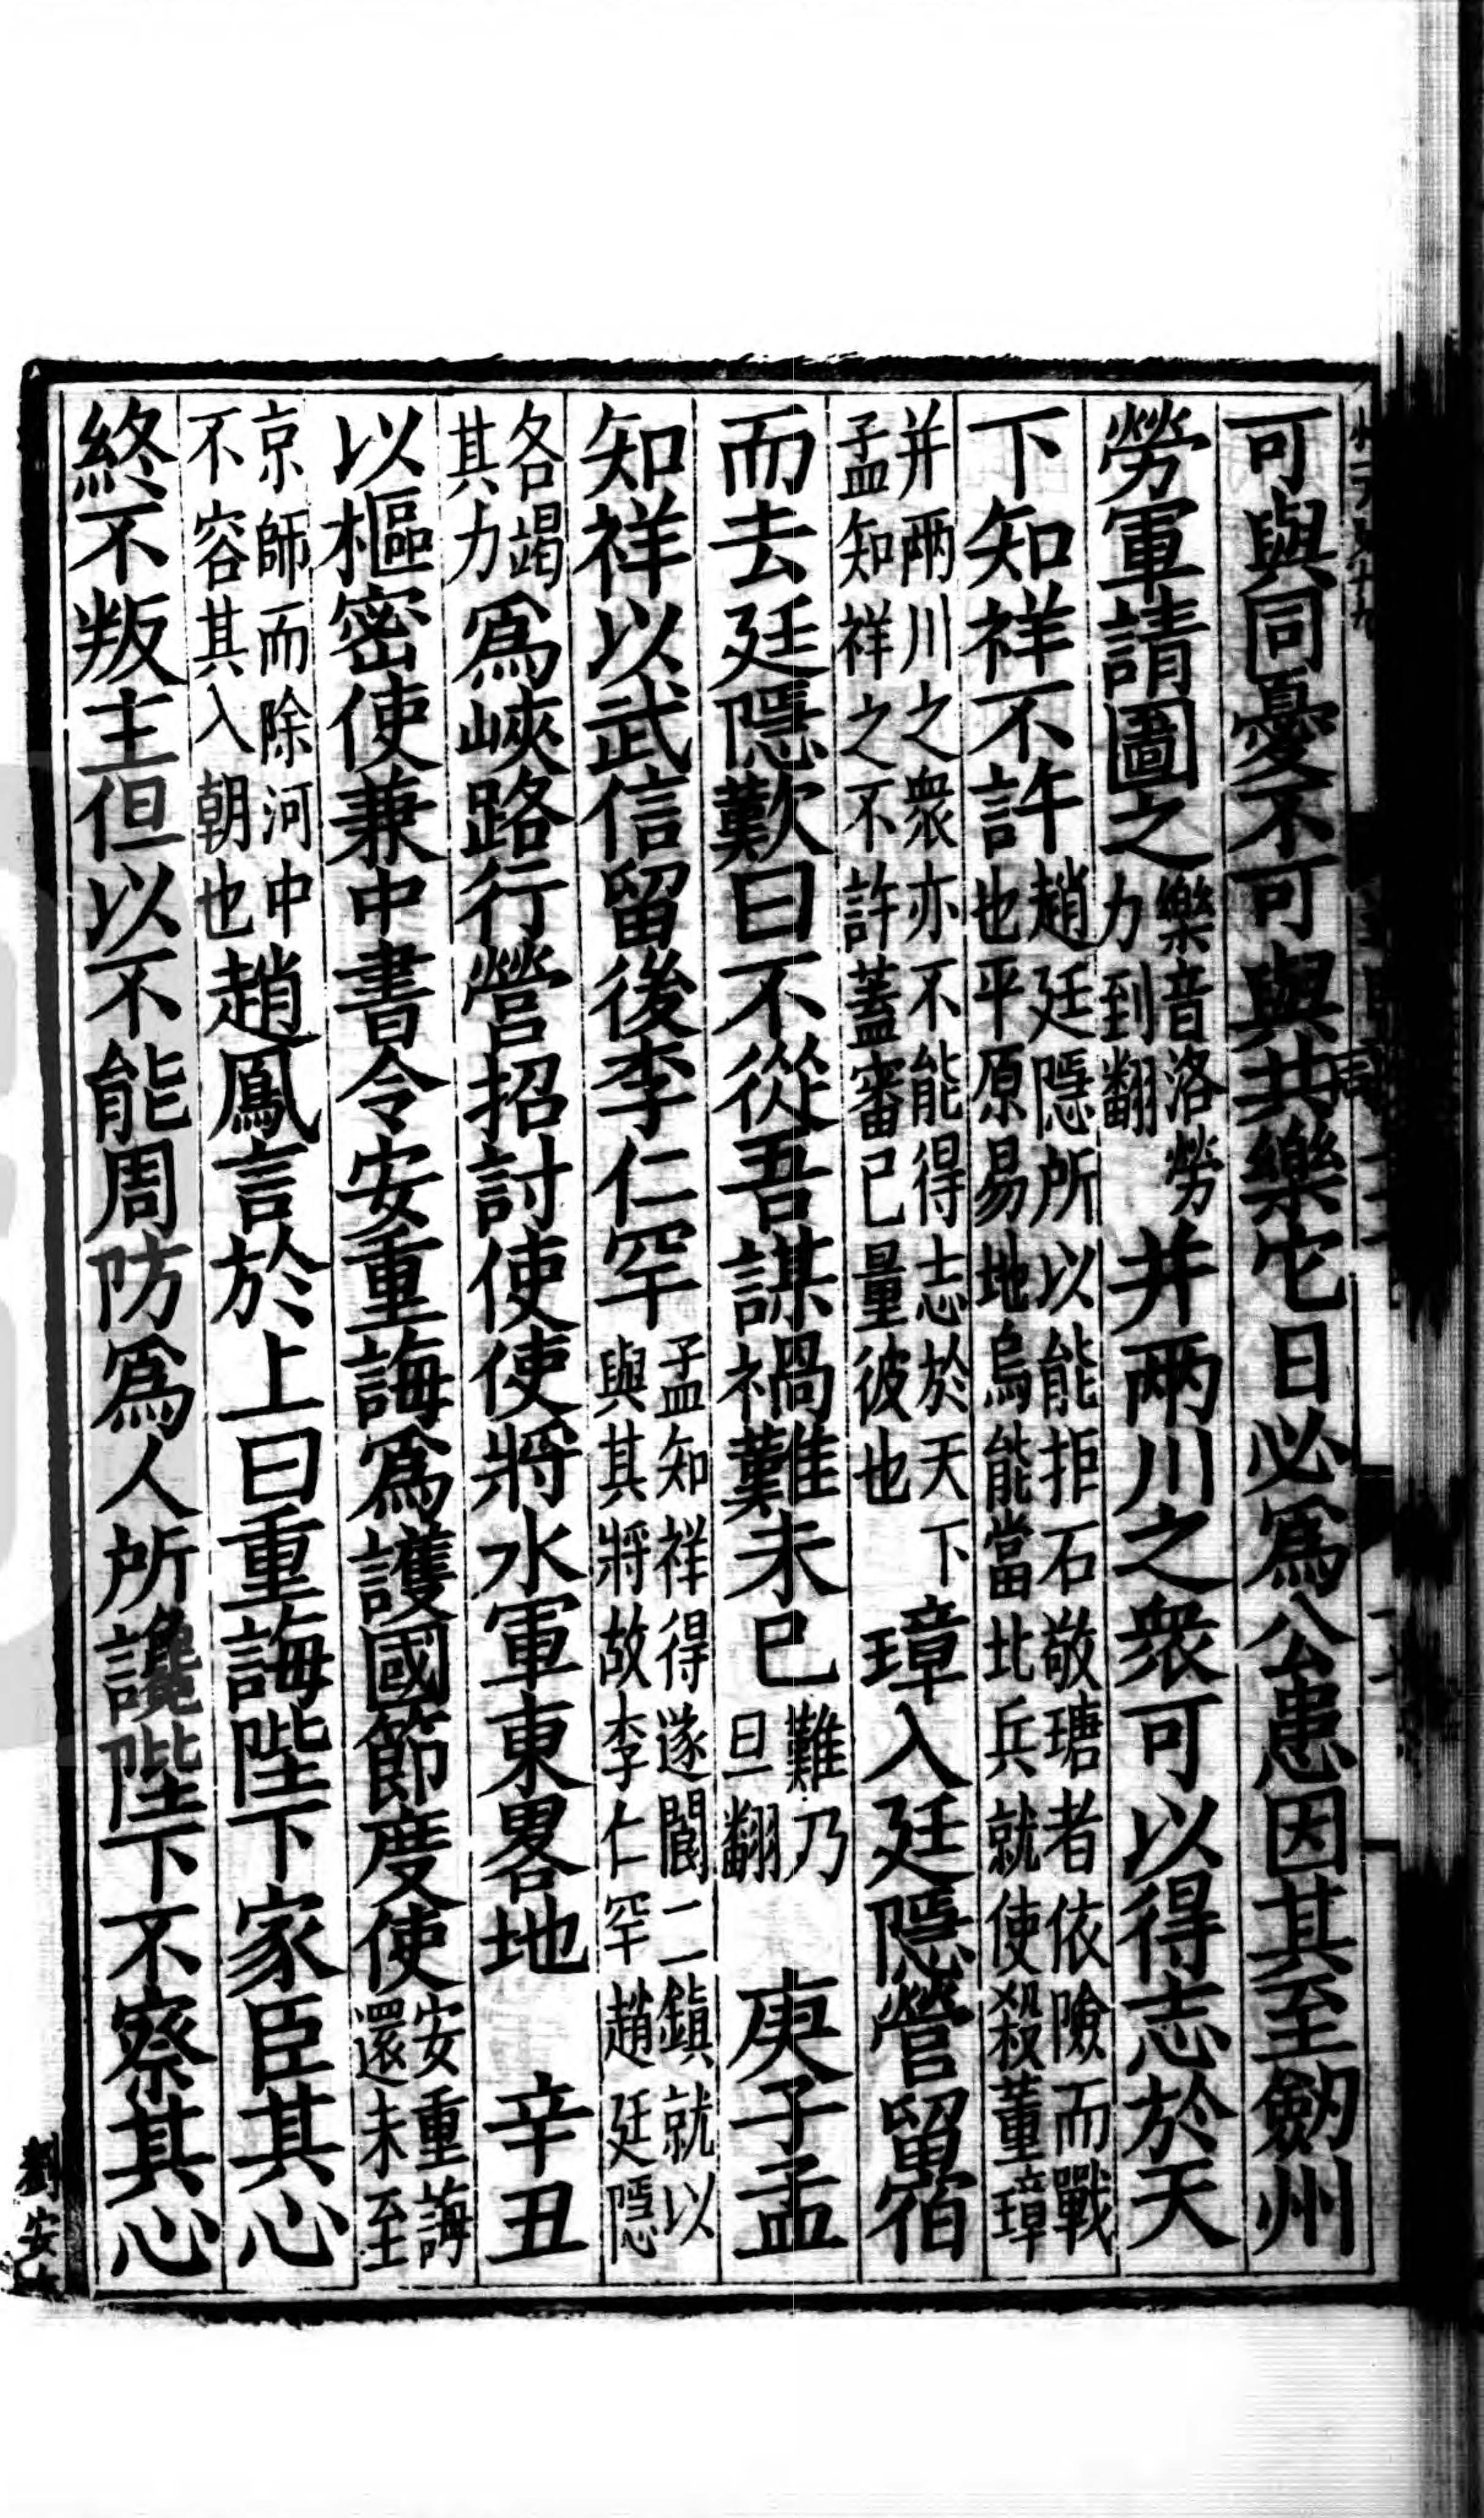 可與同憂不可與共樂它日必爲公患因其至劒州
勞軍請圖之樂音洛勞力到翻并兩川之衆可以得志於天
下知祥不許趙廷隱所以能拒石敬瑭者依險而戰也平原易地烏能當北兵就使殺董璋
并兩川之衆亦不能得志於天下孟知祥之不許蓋審已量彼也璋入廷隱營留宿
而去廷隱歎曰不從吾謀禍難未已難乃旦翻庚子孟
知祥以武信留後李仁罕孟知祥得遂閬二鎮就以與其將故李仁罕趙廷隱
各竭其力爲峽路行營招討使使將水軍東畧地辛丑
以樞密使兼中書令安重誨爲護國節度使安重誨還未至
京師而除河中不容其入朝也趙鳳言於上曰重誨陛下家臣其心
終不叛主但以不能周防爲人所讒陛下不察其心
劉安